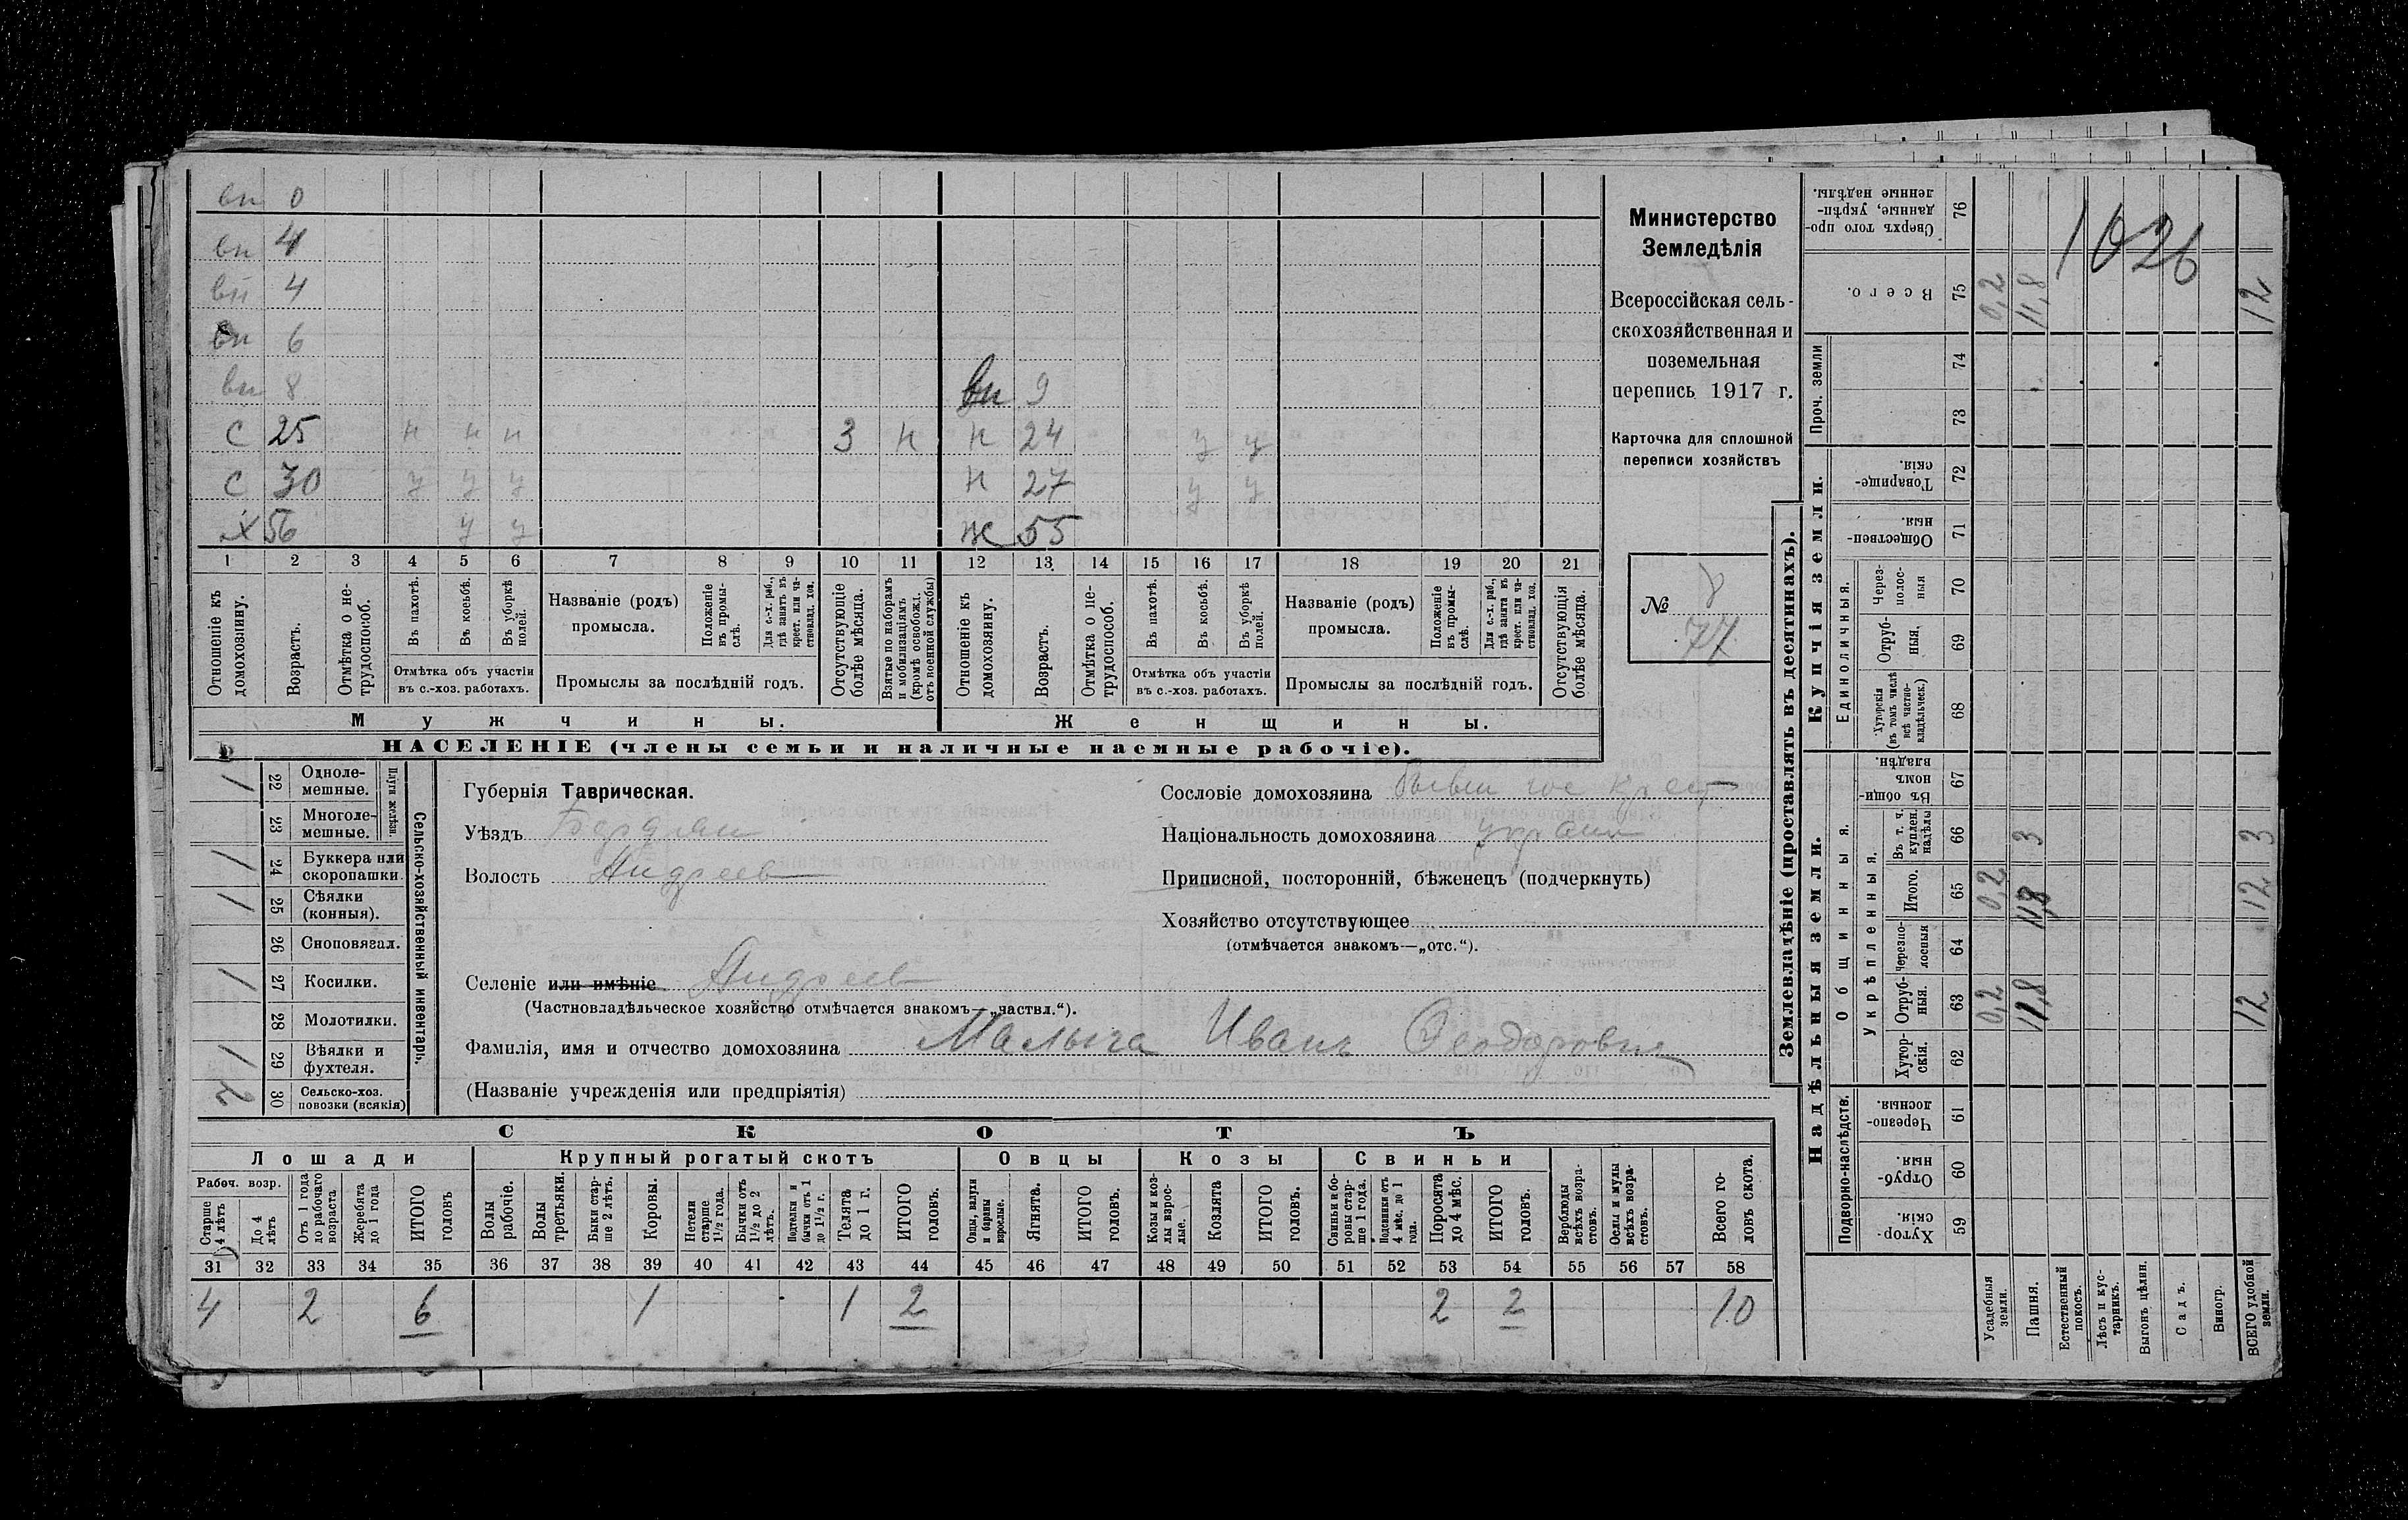 вн 0
вн 4
вн 4
вн 6
вн 8 вн 9
С 25 н н н 3 н н 24 у у
С 30 у у у н 27 у у
Х 56 у у ж 55
1 2 3 4 5 6 7 8 9 10 11 12 13 14 15 16 17 18 19 20 21
Отношеніе къ домохозяину.
Возрастъ.
Отмѣтка о не-трудоспособ.
Въ пахотѣ.
Въ косьбѣ.
Въ уборкѣ полей.
Отмѣтка объ участіи
въ с.-хоз. работахъ.
Названіе (родъ)
промысла.
Положеніе въ промы-слѣ.
Для с.-х. раб., гдѣ занятъ въ крест. или ча-стновлад. хоз.
Промыслы за послѣдній годъ.
Отсутствующіе болѣе мѣсяца.
Взятые по наборамъ и мобилизаціямъ (кромѣ освобожд. отъ военной службы)
Отношеніе къ домохозяину.
Возрастъ.
Отмѣтка о не-трудоспособ.
Въ пахотѣ.
Въ косьбѣ.
Въ уборкѣ полей.
Отмѣтка объ участіи
въ с.-хоз. работахъ.
Названіе (родъ)
промысла.
Положеніе въ промы-слѣ.
Для с.-х. раб., гдѣ занята въ крест. или ча-стновлад. хоз.
Промыслы за послѣдній годъ.
Отсутствующія болѣе мѣсяца.
Мужчины.
Женщины.
НАСЕЛЕНІЕ (члены семьи и наличные наемные рабочіе).
Министерство
Земледѣлія
Всероссійская сель-
скохозяйственная и
поземельная
перепись 1917 г.
Карточка для сплошной
переписи хозяйствъ
№
77
Сельско-хозяйственный инвентарь.
Плуги желѣзн.
1 22 Одноле-мешные.
23 Многоле-мешные.
1 24 Буккера или скоропашки.
1 25 Сѣялки (конныя).
26 Сноповязал.
1 27 Косилки.
28 Молотилки.
1 29 Вѣялки и фухтеля.
2 30 Сельско-хоз. повозки (всякія)
Губернія Таврическая.
Уѣздъ Бердян
Волость Андреев
Селеніе или имѣніе Андреев
(Частновладѣльческое хозяйство отмѣчается знакомъ—„частвл.“).
Фамилія, имя и отчество домохозяина Малыга Иванъ Феодоровичъ
(Названіе учрежденія или предпріятія)
Сословіе домохозяина Бывш гос крест
Національность домохозяина украин
Приписной, посторонній, бѣженецъ (подчеркнуть)
Хозяйство отсутствующее
(отмѣчается знакомъ—„отс.“).
СКОТЪ
Лошади Крупный рогатый скотъ Овцы Козы Свиньи
Рабоч. возр.
Старше 4 лѣтъ
До 4 лѣтъ
Отъ 1 года до рабочаго возраста
Жеребята до 1 года
ИТОГО головъ
Волы рабочіе.
Волы третьяки.
Быки стар-ше 2 лѣтъ.
Коровы.
Нетели старше 1½ года.
Бычки отъ 1½ до 2 лѣтъ.
Подтелки и бычки отъ 1 до 1½ г.
Телята до 1 г.
ИТОГО головъ.
Овцы, валухи и бараны взрослые.
Ягнята.
ИТОГО головъ.
Козы и коз-лы взрос-лые.
Козлята
ИТОГО головъ.
Свиньи и бо-ровы стар-ше 1 года.
Подсвинки отъ 4 мѣс. до 1 года.
Поросята до 4 мѣс.
ИТОГО головъ.
Верблюды всѣхъ возра-стовъ.
Ослы и мулы всѣхъ возра-стовъ.
Всего го-ловъ скота.
31 32 33 34 35 36 37 38 39 40 41 42 43 44 45 46 47 48 49 50 51 52 53 54 55 56 57 58
4 2 6 1 1 2 2 2 10
Землевладѣніе (проставлять въ десятинахъ).
Купчія земли.
Надѣльныя земли.
1026
Сверхъ того про-данные, укрѣп-ленные надѣлы. 76
Всего. 75 0,2 11,8 12
Проч. земли
74
73
Товарище-скія. 72
Обществен-ныя. 71
Единоличныя.
Через-полос-ныя 70
Отруб-ныя. 69
Хуторскія (въ томъ числѣ всѣ частно-владѣльческ.) 68
Общинныя.
Въ общи-номъ владѣн. 67
Укрѣпленныя.
Въ т. ч. куплен. надѣлы 66 3 3
Итого. 65 0,2 11,8 12
Черезпо-лосныя 64
Отруб-ныя. 63 0,2 11,8 12
Хутор-скія. 62
Подворно-наслѣдств.
Черезпо-лосныя. 61
Отруб-ныя. 60
Хутор-скія. 59
Усадебныя земли.
Пашня.
Естественный покосъ.
Лѣсъ и кус-тарникъ.
Выгонъ цѣлин.
Садъ.
Виногр.
ВСЕГО удобной земли.